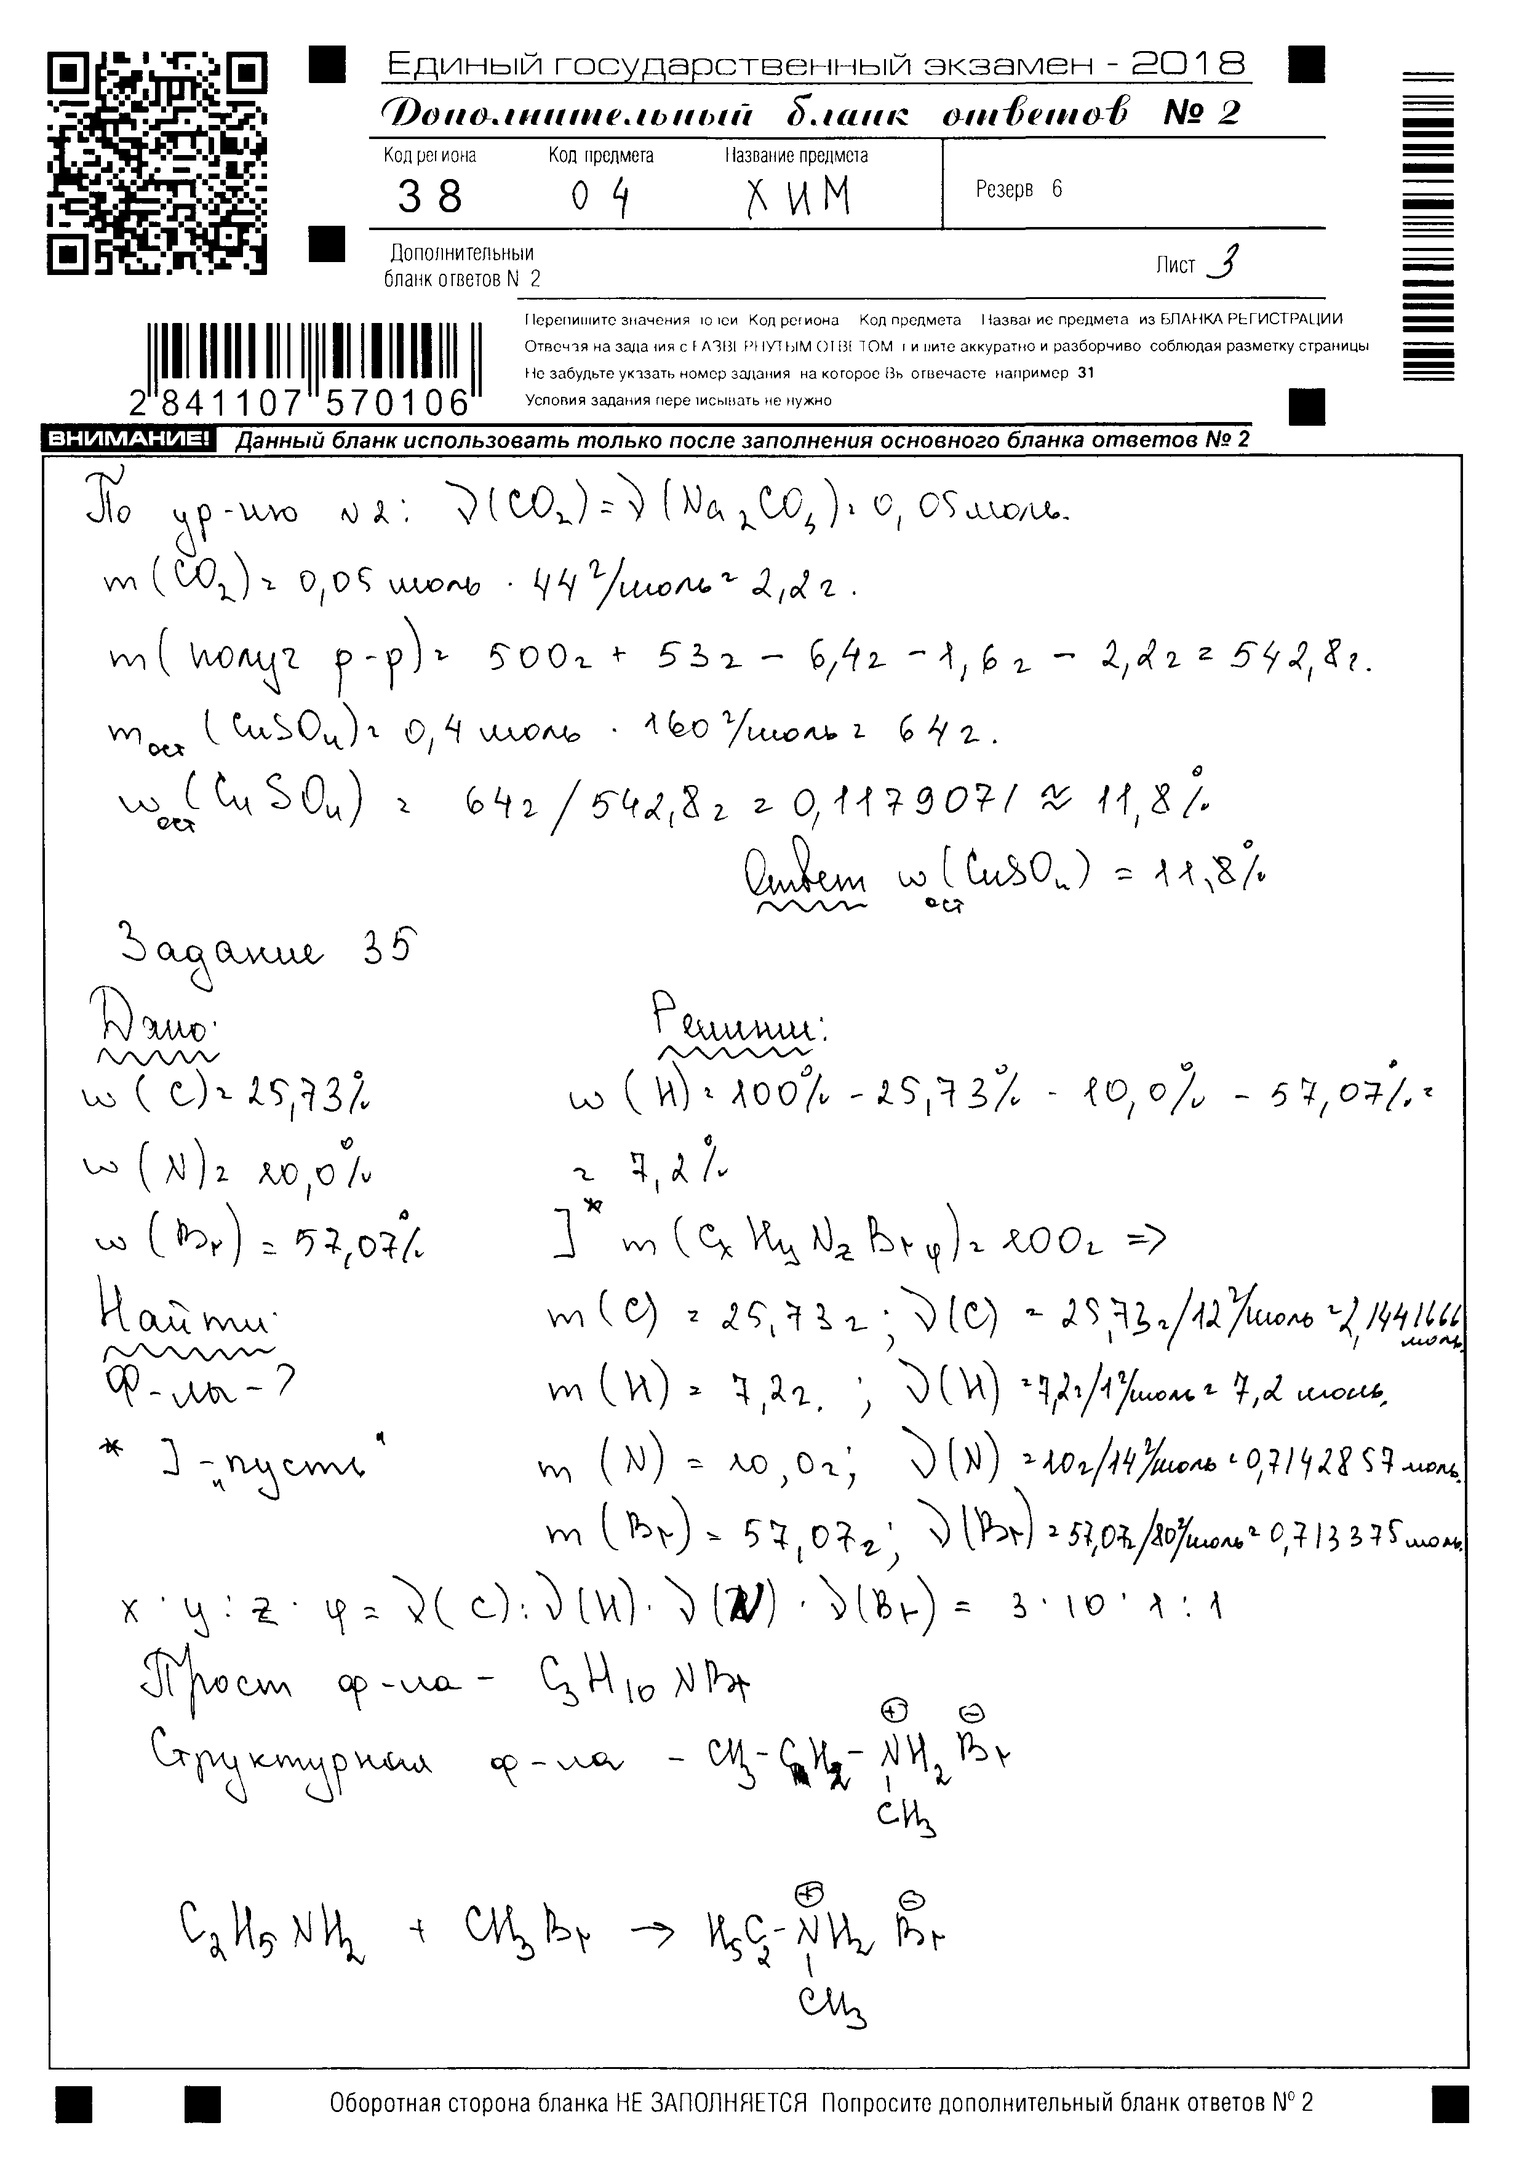 Единый государственный экзамен - 2018
Дополнительный бланк ответов № 2
Код региона Код предмета Название предмета
38 04 ХИМ
Резерв 6
Дополнительный
бланк ответов N 2
Лист 3
Перепишите значения полей Код региона Код предмета Название предмета из БЛАНКА РЕГИСТРАЦИИ
Отвечая на задания с РАЗВЕРНУТЫМ ОТВЕТОМ пишите аккуратно и разборчиво соблюдая разметку страницы
Не забудьте указать номер задания на которое Вы отвечаете например 31
Условия задания переписывать не нужно
2 841107 570106
ВНИМАНИЕ! Данный бланк использовать только после заполнения основного бланка ответов № 2
По ур-ию N2: ν(CO₂) = ν(Na₂CO₃) = 0,05 моль.
m(CO₂) = 0,05 моль · 44 г/моль = 2,2 г.
m(получ р-р) = 500г + 53г - 6,4г - 1,6г - 2,2г = 542,8г.
m ост (CuSO₄) = 0,4 моль · 160 г/моль = 64 г.
w ост (CuSO₄) = 64г / 542,8г = 0,1179071 ≈ 11,8%
Ответ w ост (CuSO₄) = 11,8%
Задание 35
Дано: Решение:
w(C) = 25,73% w(H) = 100% - 25,73% - 10,0% - 57,07% =
w(N) = 10,0% = 7,2%
w(Br) = 57,07% ]* m(CxHyNzBrφ) = 100г =>
Найти: m(C) = 25,73г; ν(C) = 25,73г/12г/моль = 2,1441666 моль.
Ф-ла-? m(H) = 7,2г. ; ν(H) = 7,2г/1г/моль = 7,2 моль.
* ] - „пусть“ m(N) = 10,0г; ν(N) = 10г/14г/моль = 0,7142857 моль.
m(Br) = 57,07г; ν(Br) = 57,07г/80г/моль = 0,713375 моль.
x : y : z : φ = ν(C) : ν(H) : ν(N) : ν(Br) = 3 : 10 : 1 : 1
Прост ф-ла - C₃H₁₀NBr
⊕ ⊖
Структурная ф-ла - CH₃-CH₂-NH₂ Br
CH₃
⊕ ⊖
C₂H₅NH₂ + CH₃Br → H₅C₂-NH₂ Br
CH₃
Оборотная сторона бланка НЕ ЗАПОЛНЯЕТСЯ Попросите дополнительный бланк ответов № 2